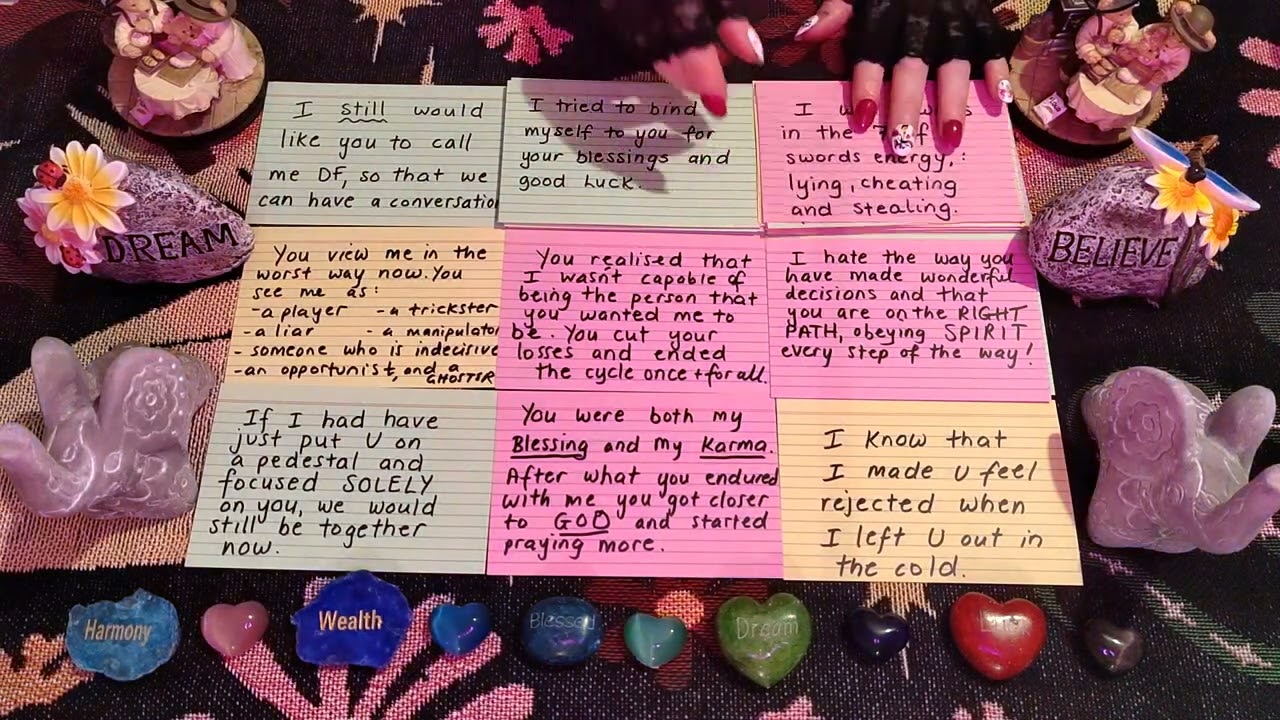 I still would
like you to call
me DF, so that we
can have a conversatio
I tried to bind
myself to you for
your blessings and
good luck.
I
in the 7 of
swords energy,:
lying, cheating
and stealing.
DREAM
BELIEVE
You view me in the
worst way now. You
see me as:
-a player -a trickster
-a liar -a manipulator
-someone who is indecisive
-an opportunist, and a
GHOSTER
You realised that
I wasnt capable of
being the person that
you wanted me to
be. You cut your
losses and ended
the cycle once + for all.
I hate the way you
have made wonderful
decisions and that
you are on the RIGHT
PATH, obeying SPIRIT
every step of the way!
If I had have
just put U on
a pedestal and
focused SOLELY
on you, we would
still be together
now.
You were both my
Blessing and my Karma.
After what you endured
with me you got closer
to GOD and started
praying more.
I know that
I made U feel
rejected when
I left U out in
the cold.
Harmony
Wealth
Blessed
Dream